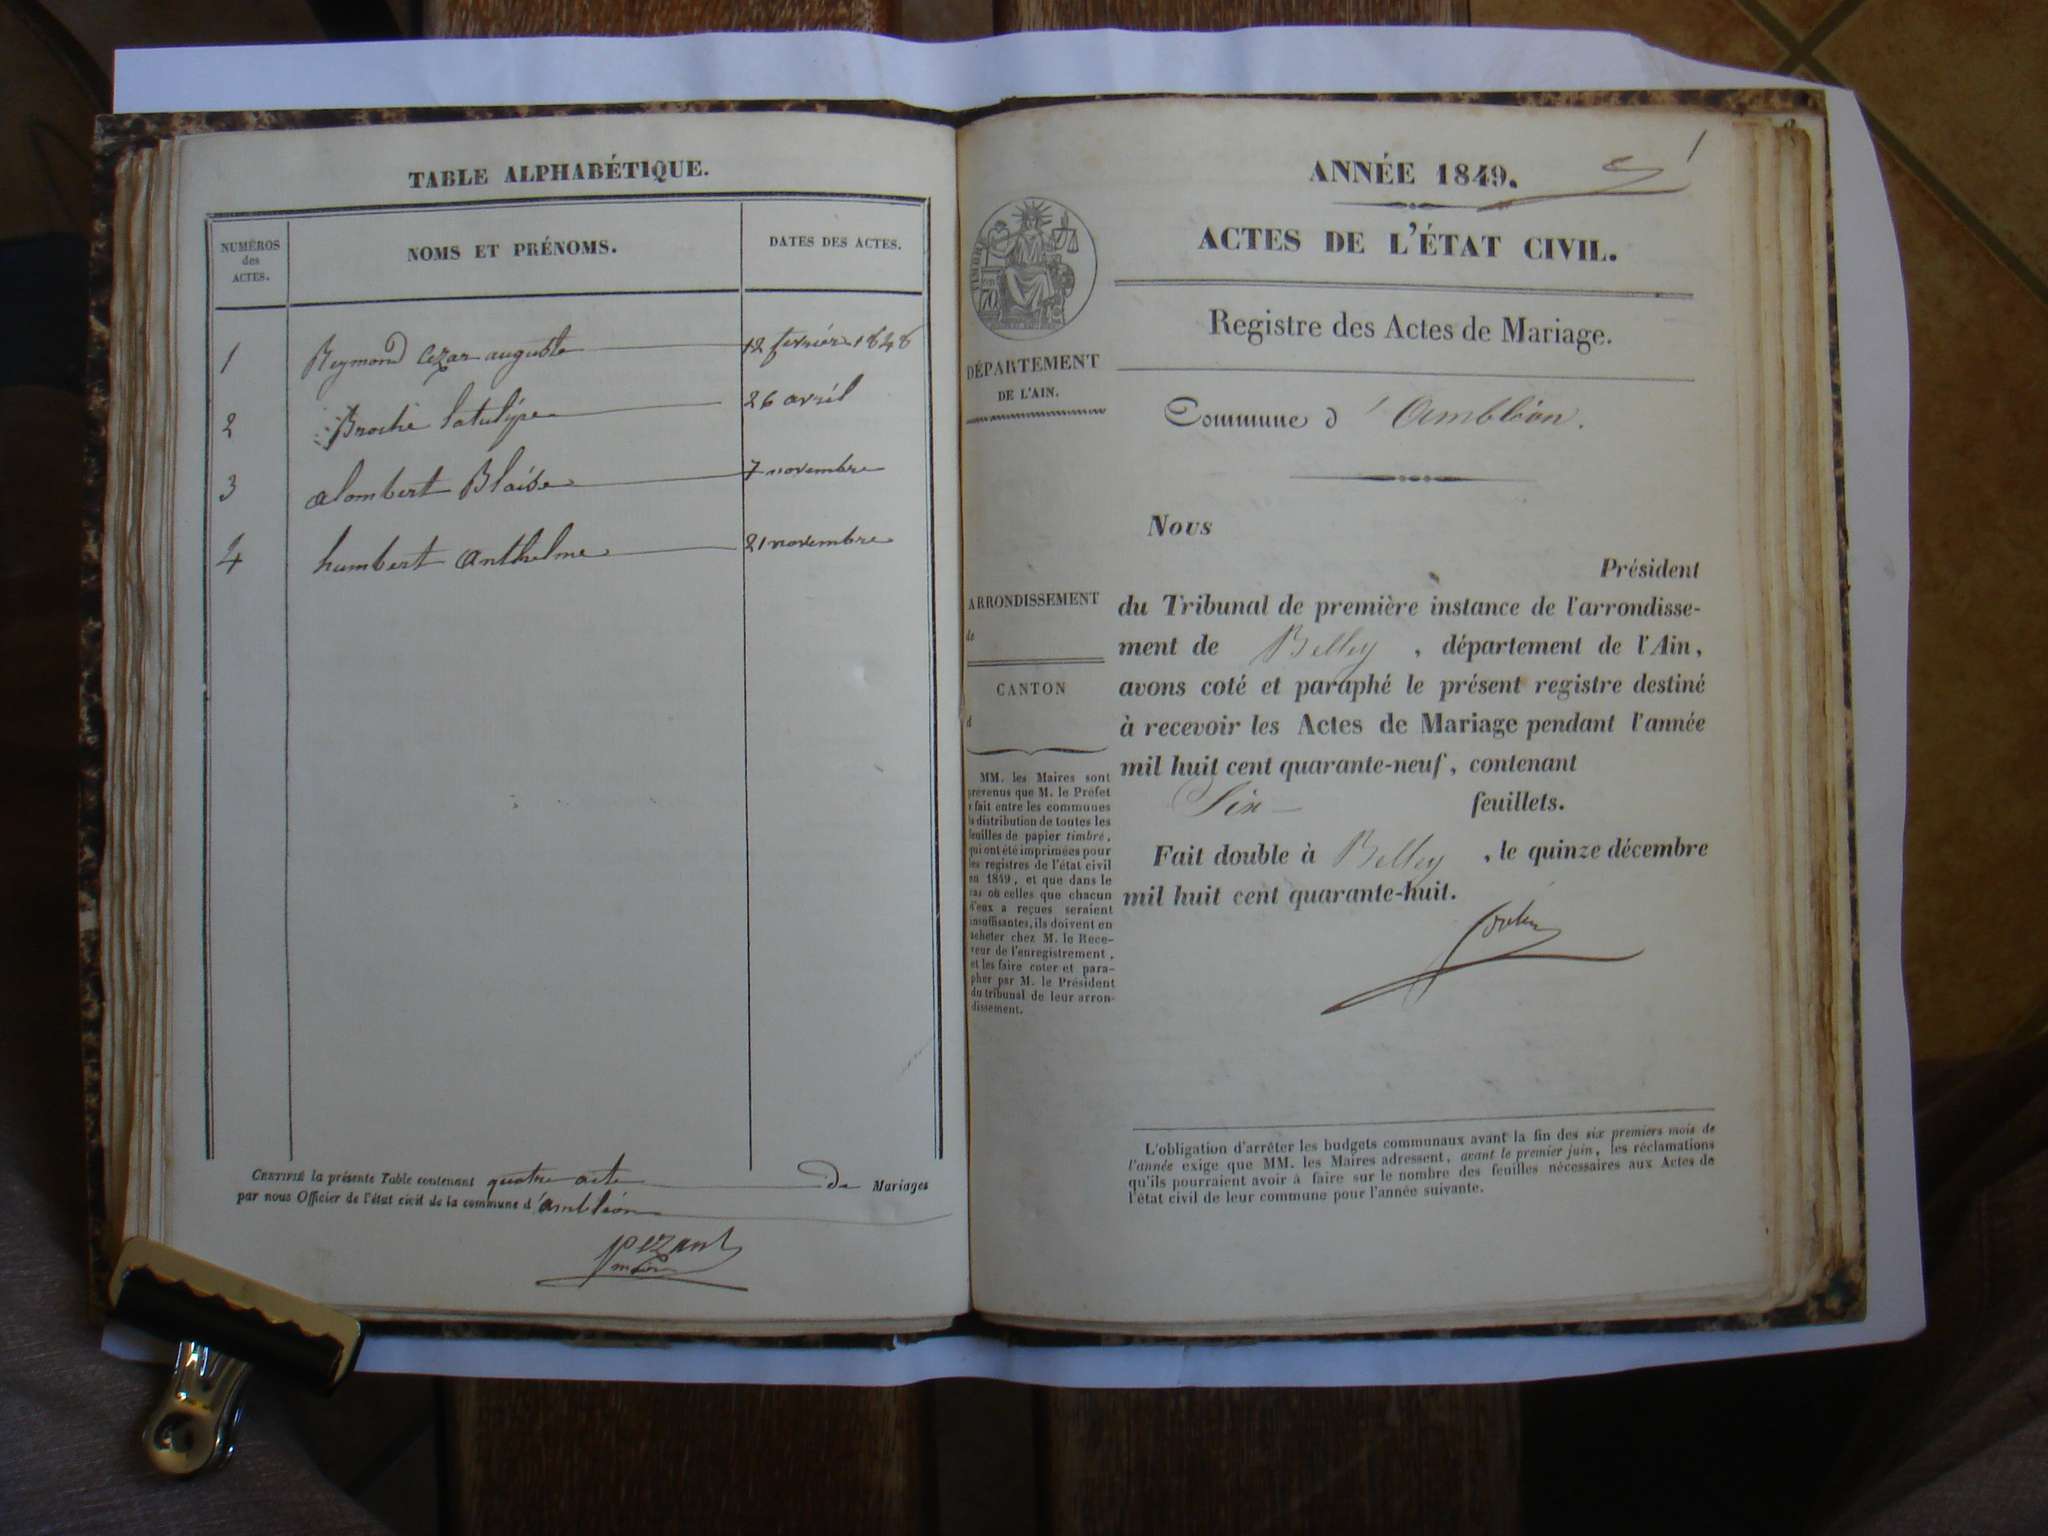 TABLE ALPHABÉTIQUE.
NUMÉROS
des
ACTES.
NOMS ET PRÉNOMS.
DATES DES ACTES.
1 Reymond Cezar auguste 12 fevrier 1848
2 Broche latulipe 26 avril
3 alombert Blaise 7 novembre
4 humbert anthelme 21 novembre
CERTIFIÉ la présente Table contenant quatre acte de Mariages
par nous Officier de l'état civil de la commune d'ambléon
pezant
1
ANNÉE 1849.
ACTES DE L'ÉTAT CIVIL.
Registre des Actes de Mariage.
TIMBRE
70
DÉPARTEMENT
DE L'AIN.
Commune d'Ambléon.
ARRONDISSEMENT
de
CANTON
d
MM. les Maires sont
prévenus que M. le Préfet
fait entre les communes
la distribution de toutes les
feuilles de papier timbré,
qui ont été imprimées pour
les registres de l'état civil
en 1849, et que dans le
cas où celles que chacun
d'eux a reçues seraient
insuffisantes, ils doivent en
acheter chez M. le Rece-
veur de l'enregistrement,
et les faire coter et para-
pher par M. le Président
du tribunal de leur arron-
dissement.
Nous
Président
du Tribunal de première instance de l'arrondisse-
ment de Belley, département de l'Ain,
avons coté et paraphé le présent registre destiné
à recevoir les Actes de Mariage pendant l'année
mil huit cent quarante-neuf, contenant
Six feuillets.
Fait double à Belley, le quinze décembre
mil huit cent quarante-huit.
L'obligation d'arrêter les budgets communaux avant la fin des six premiers mois de
l'année exige que MM. les Maires adressent, avant le premier juin, les réclamations
qu'ils pourraient avoir à faire sur le nombre des feuilles nécessaires aux Actes de
l'état civil de leur commune pour l'année suivante.